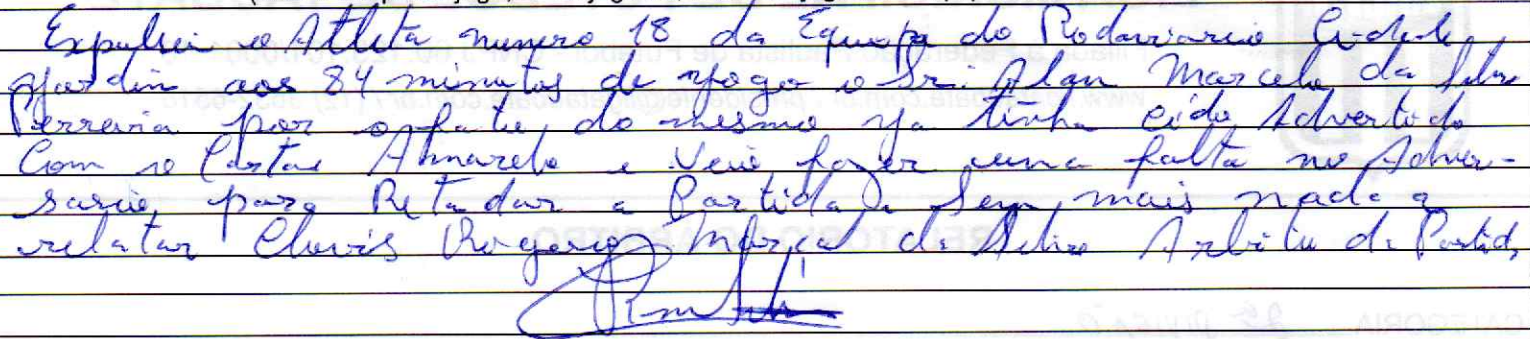 Expulsei o Atleta numero 18 da Equipe do Rodoviario Cidade
Jardin aos 84 minutos de jogo o Sr. Alan Marcelo da Silva
Ferreira por o fato, do mesmo ja tinha cido Advertido
Com o Cartao Amarelo e Veio fazer uma falta no Adver-
sario, para Retardar a Partida. Sem mais nada a
relatar Clovis Rogerio Marçal da Silva Arbitro da Partida